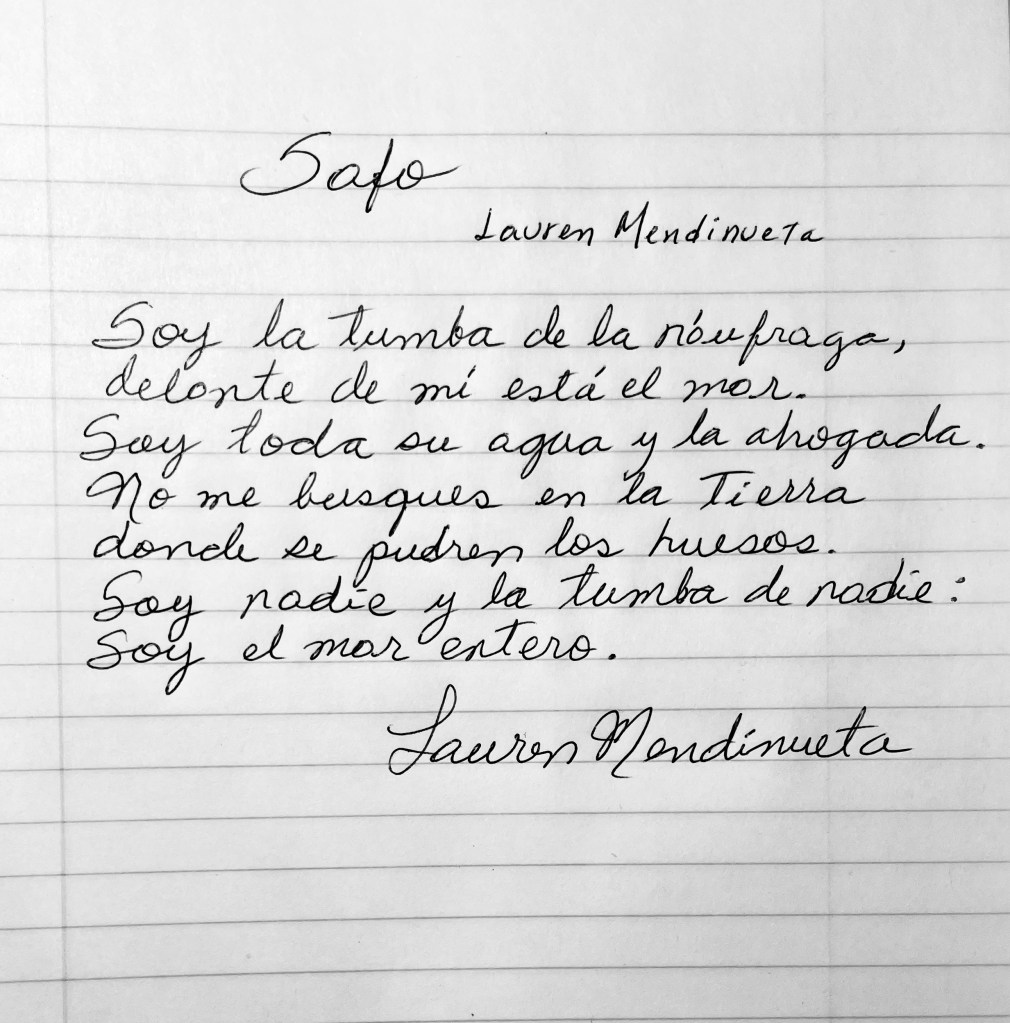 Safo
Lauren Mendinueta
Soy la tumba de la náufraga,
delante de mí está el mar.
Soy toda su agua y la ahogada.
No me busques en la Tierra
donde se pudren los huesos.
Soy nadie y la tumba de nadie:
Soy el mar entero.
Lauren Mendinueta